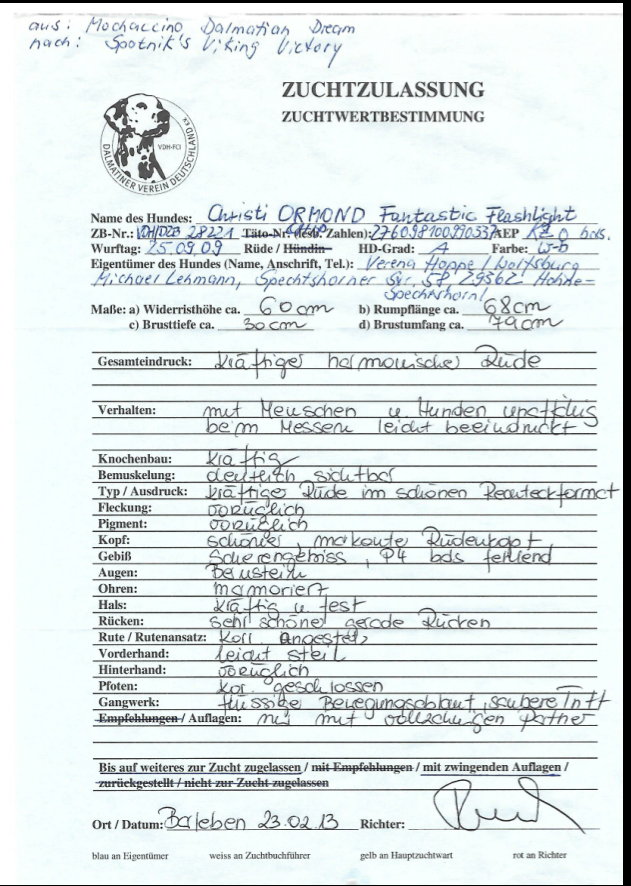 aus: Mochaccino Dalmatian Dream
nach: Spotnik's Viking Victory
ZUCHTZULASSUNG
ZUCHTWERTBESTIMMUNG
DALMATINER VEREIN DEUTSCHLAND e.V.
VDH-FCI
Name des Hundes: Christi ORMOND Fantastic Flashlight
ZB-Nr.: VDH/DZB 28221 Täto-Nr. (des. Zahlen): 276098100990337 AEP bds.
Wurftag: 25.09.09 Rüde / Hündin HD-Grad: A Farbe: w-b
Eigentümer des Hundes (Name, Anschrift, Tel.): Verena Hoppe / Wolfsburg
Michael Lehmann, Spechtshorner Str. 5P, 29362 Hohne-
Spechtshorn/
Maße: a) Widerristhöhe ca. 60cm b) Rumpflänge ca. 68cm
c) Brusttiefe ca. 30cm d) Brustumfang ca. 79cm
Gesamteindruck: kräftiger harmonischer Rüde
Verhalten: mit Menschen u. Hunden unauffällig
beim Messen leicht beeindruckt
Knochenbau: kräftig
Bemuskelung: deutlich sichtbar
Typ / Ausdruck: kräftiger Rüde im schönen Rechteckformat
Fleckung: vorzüglich
Pigment: vorzüglich
Kopf: schöner, markanter Rüdenkopf,
Gebiß Scherengebiss, P4 bds fehlend
Augen: Bernstein
Ohren: mamoriert
Hals: kräftig u. fest
Rücken: sehr schöner gerade Rücken
Rute / Rutenansatz: Korr. angesetzt
Vorderhand: leicht steil
Hinterhand: vorzüglich
Pfoten: Kor. geschlossen
Gangwerk: flüssiger Bewegungsablauf, saubere Tritt
Empfehlungen / Auflagen: nur mit vollzahnigen Partner
Bis auf weiteres zur Zucht zugelassen / mit Empfehlungen / mit zwingenden Auflagen /
zurückgestellt / nicht zur Zucht zugelassen
Ort / Datum: Barleben 23.02.13 Richter:
blau an Eigentümer weiss an Zuchtbuchführer gelb an Hauptzuchtwart rot an Richter